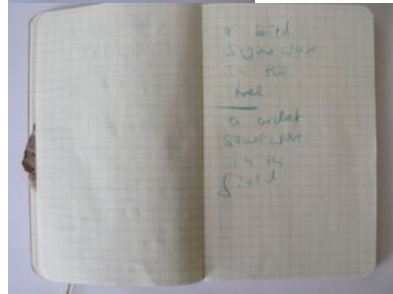 a bird
somewhere
in the
tree
a
somewhere
in the
field